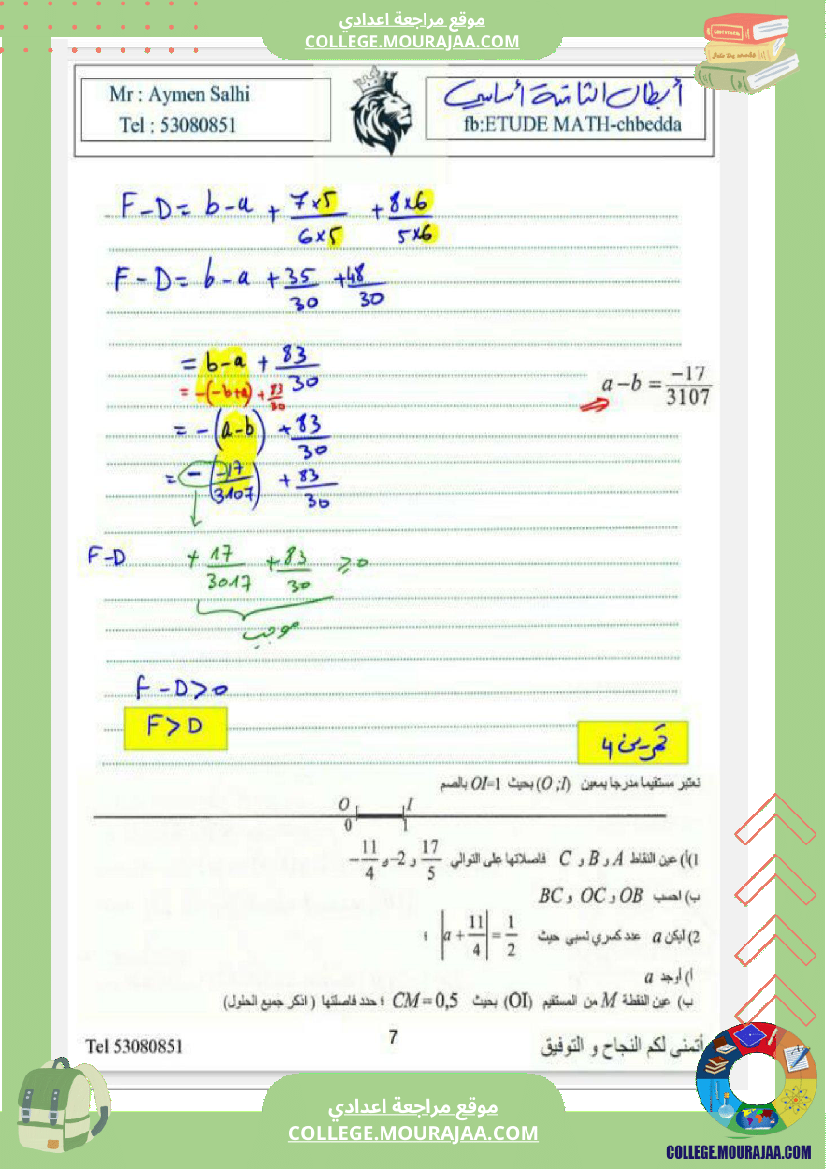 موقع مراجعة اعدادي
COLLEGE.MOURAJAA.COM
Mr : Aymen Salhi
Tel : 53080851
أبطال الثامنة أساسي
fb:ETUDE MATH-chbedda
F-D= b-a + 7x5/6x5 + 8x6/5x6
F-D= b-a + 35/30 + 48/30
= b-a + 83/30
= -(-b+a) + 83/30
a-b = -17/3107
= -(a-b) + 83/30
= -(-17/3107) + 83/30
F-D + 17/3017 + 83/30 ≥0
موجب
F-D>0
F>D
تمرين 4
نعتبر مستقيما مدرجا بمعين (O ;I) بحيث OI=1 بالصم
O I
0 1
1)أ) عين النقاط A و B و C فاصلاتها على التوالي 17/5 و 2- و -11/4
ب) احسب OB و OC و BC
2) ليكن a عدد كسري نسبي حيث |a + 11/4| = 1/2 ؛
أ) أوجد a
ب) عين النقطة M من المستقيم (OI) بحيث CM = 0,5 ؛ حدد فاصلتها ( اذكر جميع الحلول)
Tel 53080851
7
أتمنى لكم النجاح و التوفيق
موقع مراجعة اعدادي
COLLEGE.MOURAJAA.COM
COLLEGE.MOURAJAA.COM